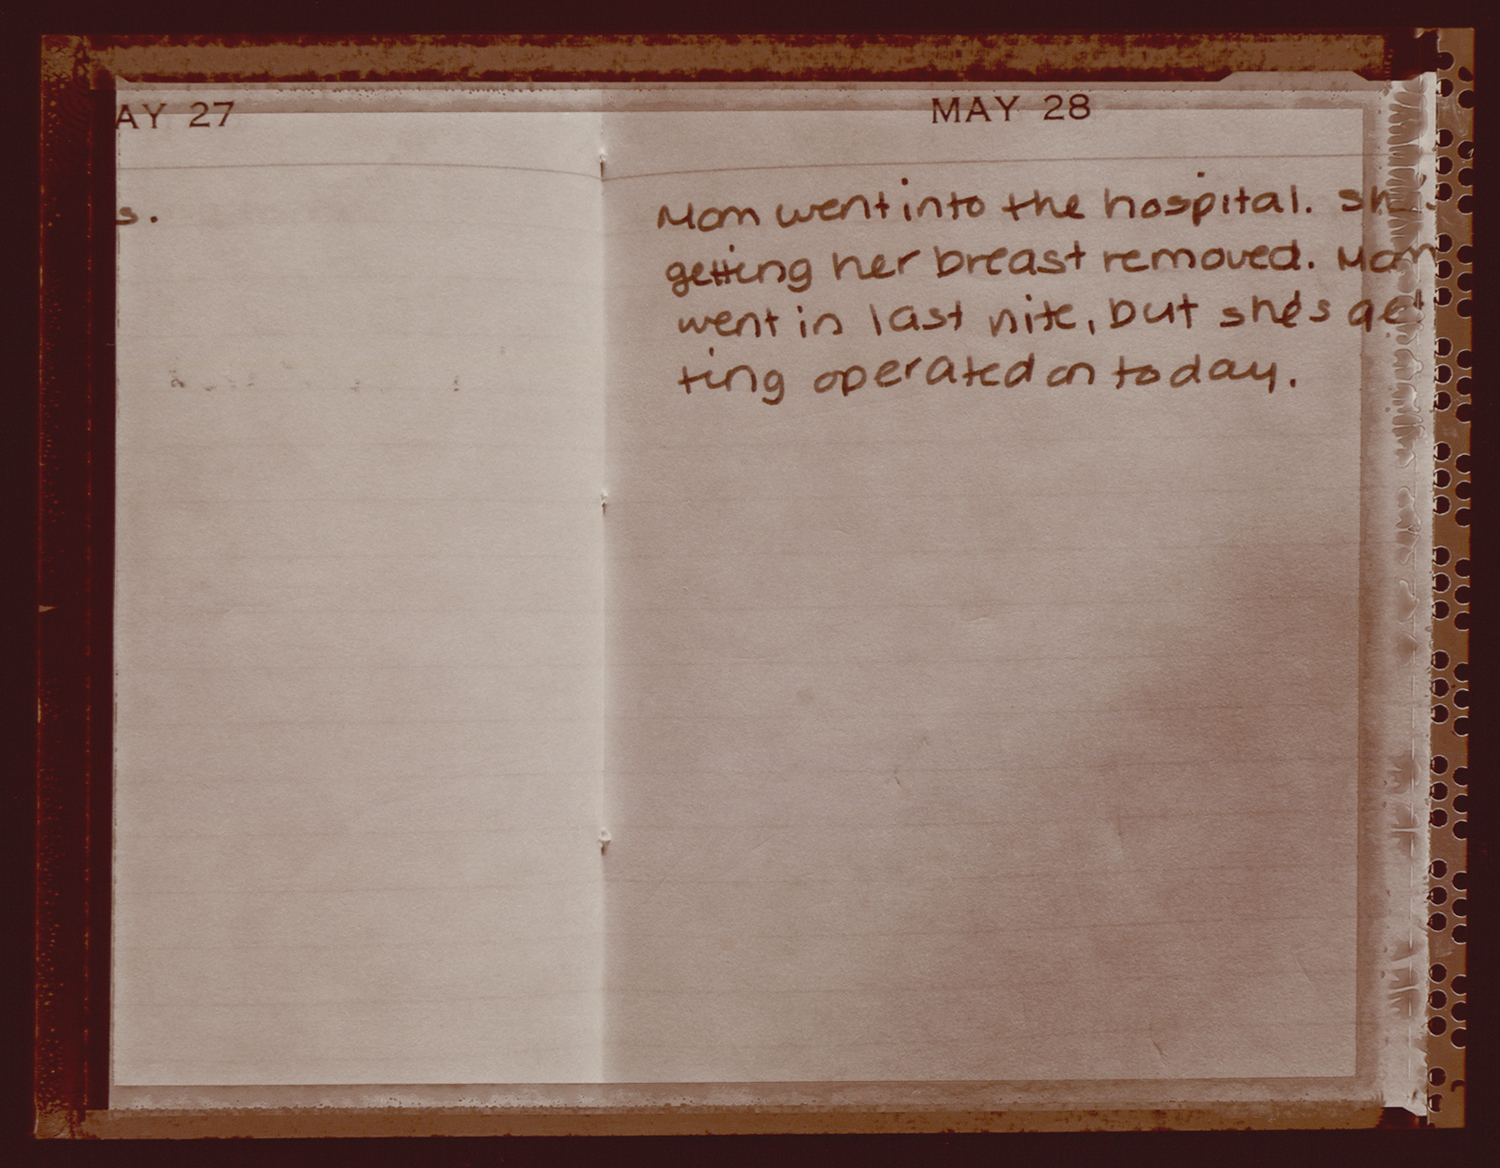 AY 27
MAY 28
s.
Mom went into the hospital. She's
getting her breast removed. Mom
went in last nite, but she's get
ting operated on today.